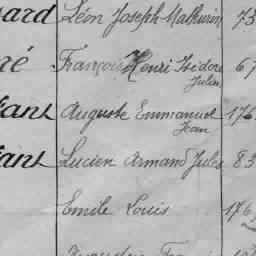 ard Léon Joseph Mathurin 73
né François Henri Isidore 67
Julien
fant Auguste Emmanuel 176
Jean
fant Lucien Armand Jules 83
Emile Louis 176